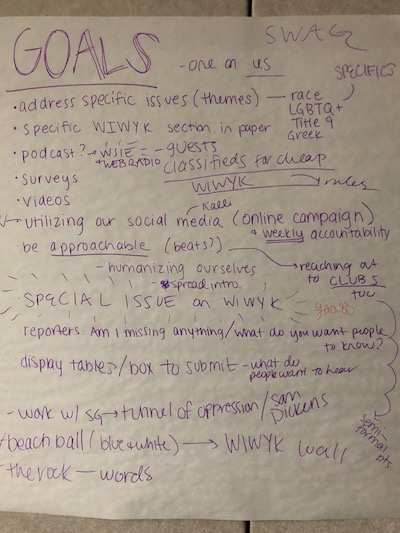 GOALS
SWAG
- one on us
SPECIFICS
• address specific issues (themes) — race
LGBTQ+
Title 9
Greek
• specific WIWYK section in paper
• podcast? → WSIE = - guests
+ WEB RADIO
classifieds for cheap
• surveys
WIWYK → rules
• videos
Kalli
- utilizing our social media (online campaign)
+ weekly accountability
be approachable (beats?)
→ reaching out
to CLUBS
too
- humanizing ourselves
* spread intro.
SPECIAL ISSUE on WIWYK
reporters: Am I missing anything/what do you want people
to know?
display tables/box to submit - what do
people want to hear
- work w/ SG → tunnel of oppression/Sam
Dickens
semi-
formal
pts.
- beach ball (blue & white) → WIWYK wall
- the rock — words